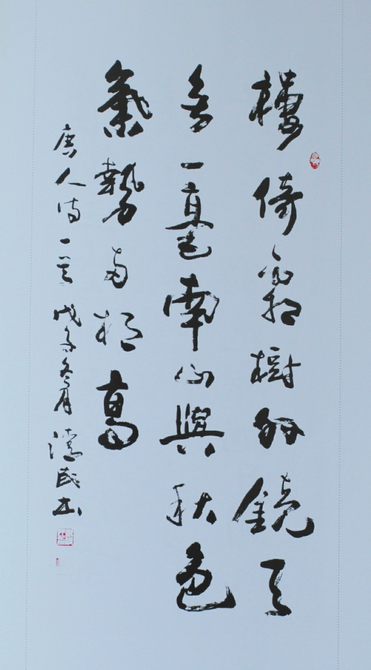 樓倚霜樹外鏡天
無一毫南山與秋色
氣勢兩相高
唐人詩一首戊冬月民书